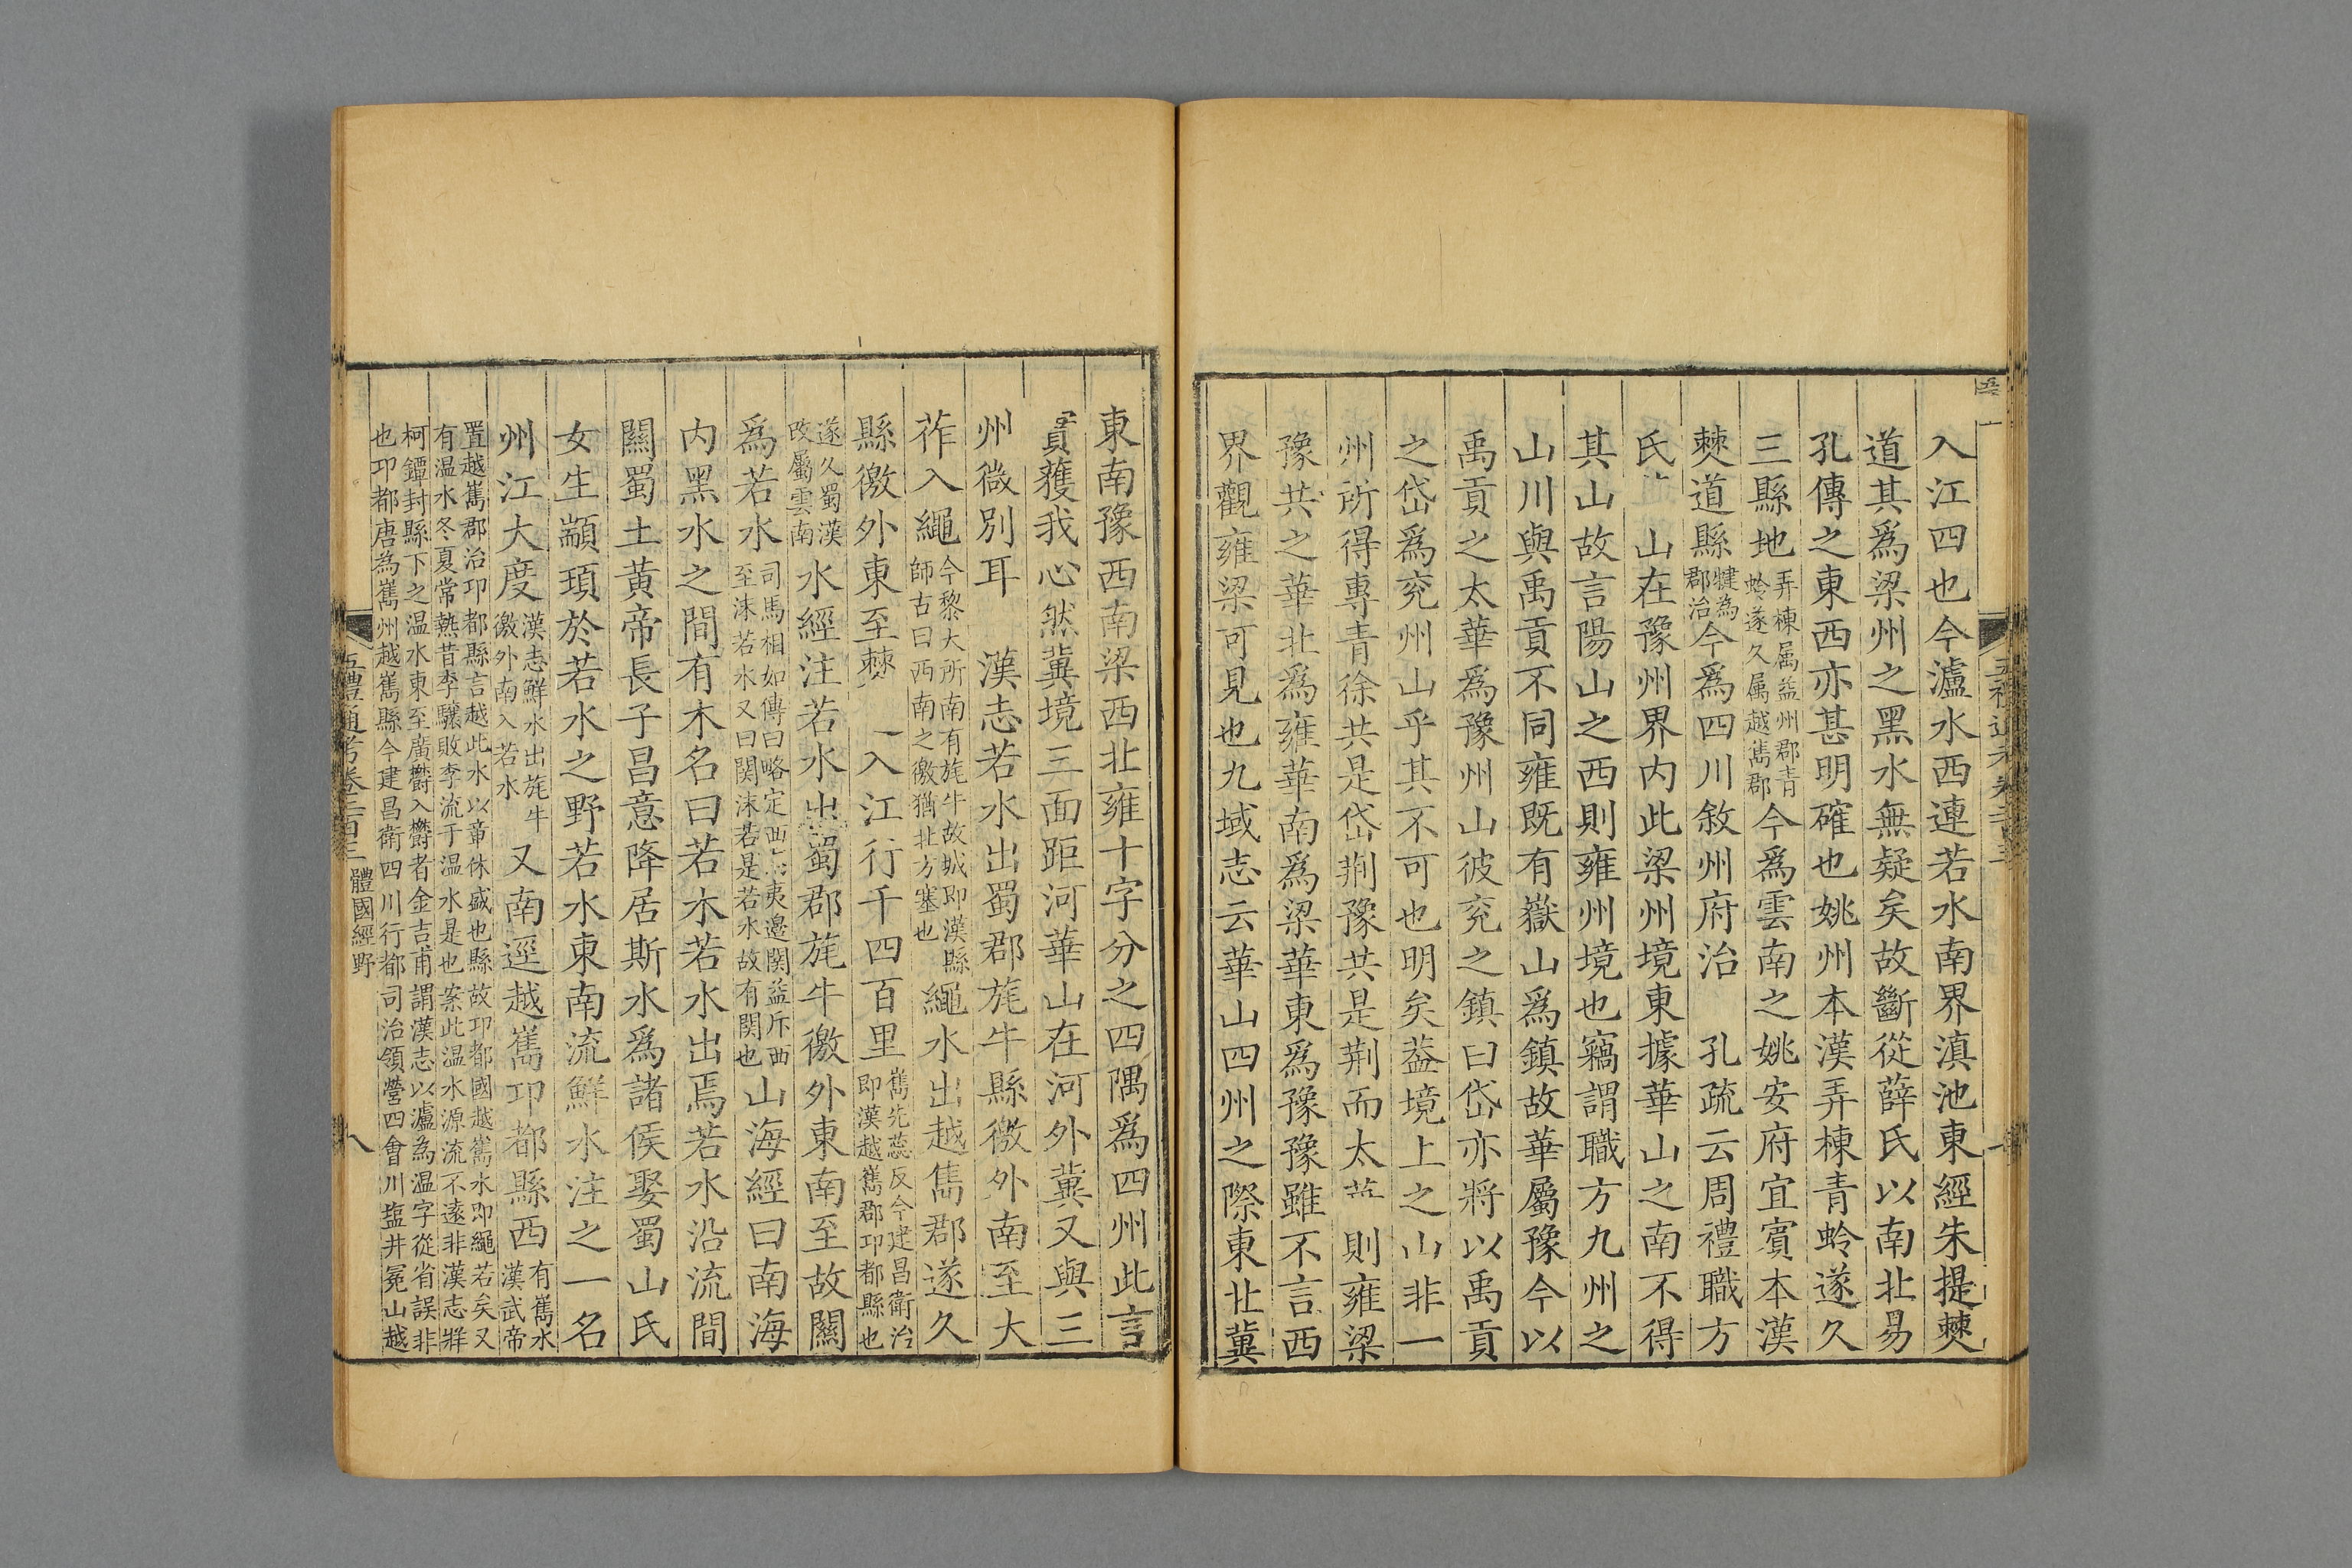 入江四也今瀘水西連若水南界滇池東經朱提僰
道其爲梁州之黑水無疑矣故斷從薛氏以南北易
孔傳之東西亦甚明確也姚州本漢弄棟青蛉遂久
三縣地弄棟属益州郡青蛉遂久属越嶲郡今爲雲南之姚安府宜賓本漢
僰道縣犍為郡治今爲四川敘州府治　孔疏云周禮職方
氏　山在豫州界内此梁州境東據華山之南不得
其山故言陽山之西則雍州境也竊謂職方九州之
山川與禹貢不同雍既有嶽山爲鎮故華屬豫今以
禹貢之太華爲豫州山彼兖之鎮曰岱亦將以禹貢
之岱爲兖州山乎其不可也明矣蓋境上之山非一
州所得專青徐共是岱荆豫共是荆而太　則雍梁
豫共之華北爲雍華南爲梁華東爲豫豫雖不言西
界觀雍梁可見也九域志云華山四州之際東北冀
東南豫西南梁西北雍十字分之四隅爲四州此言
實獲我心然冀境三面距河華山在河外冀又與三
州微別耳　漢志若水出蜀郡旄牛縣徼外南至大
莋入繩今黎大所南有旄牛故城即漢縣師古曰西南之徼猶北方塞也繩水出越嶲郡遂久
縣徼外東至僰　入江行千四百里嶲先蕊反今建昌衛治即漢越嶲郡邛都縣也
遂久蜀漢改屬雲南水經注若水出蜀郡旄牛徼外東南至故關
爲若水司馬相如傳曰略定西　夷邊関益斥西至沬若水又曰関沬若是若水故有関也山海經曰南海
内黑水之間有木名曰若木若水出焉若水沿流間
關蜀土黃帝長子昌意降居斯水爲諸侯娶蜀山氏
女生顓頊於若水之野若水東南流鮮水注之一名
州江大度漢志鮮水出旄牛徼外南入若水　又南逕越嶲邛都縣西有嶲水漢武帝
置越嶲郡治邛都縣言越此水以章休盛也縣故邛都國越嶲水即繩若矣又
有温水冬夏常熱昔李驤敗李流于温水是也案此温水源流不遠非漢志牂
柯鐔封縣下之温水東至廣鬱入鬱者金吉甫謂漢志以瀘為温字從省誤非
也邛都唐為嶲州越嶲縣今建昌衛四川行都司治領營四會川塩井冕山越
五禮通考卷二百三　體國經野
八